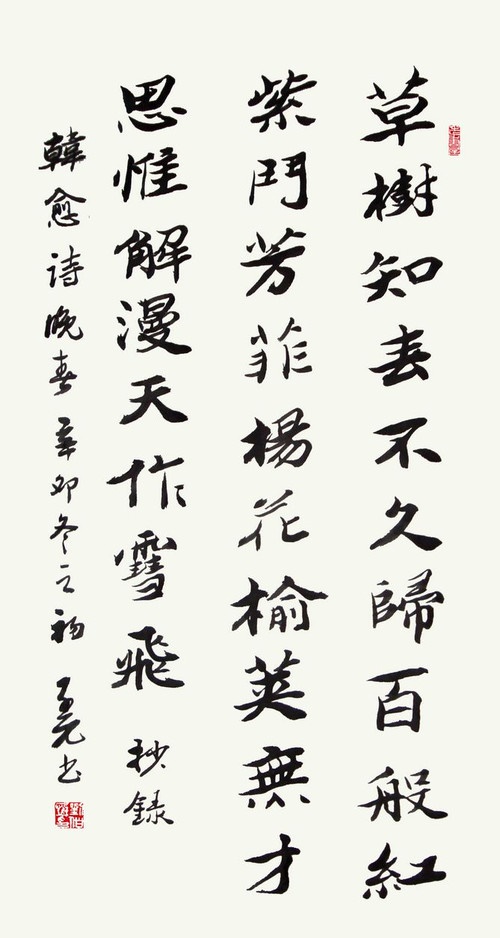 草樹知春不久歸百般紅
紫鬥芳菲楊花榆莢無才
思惟解漫天作雪飛 抄錄
韓愈詩晚春 辛卯冬之初 书